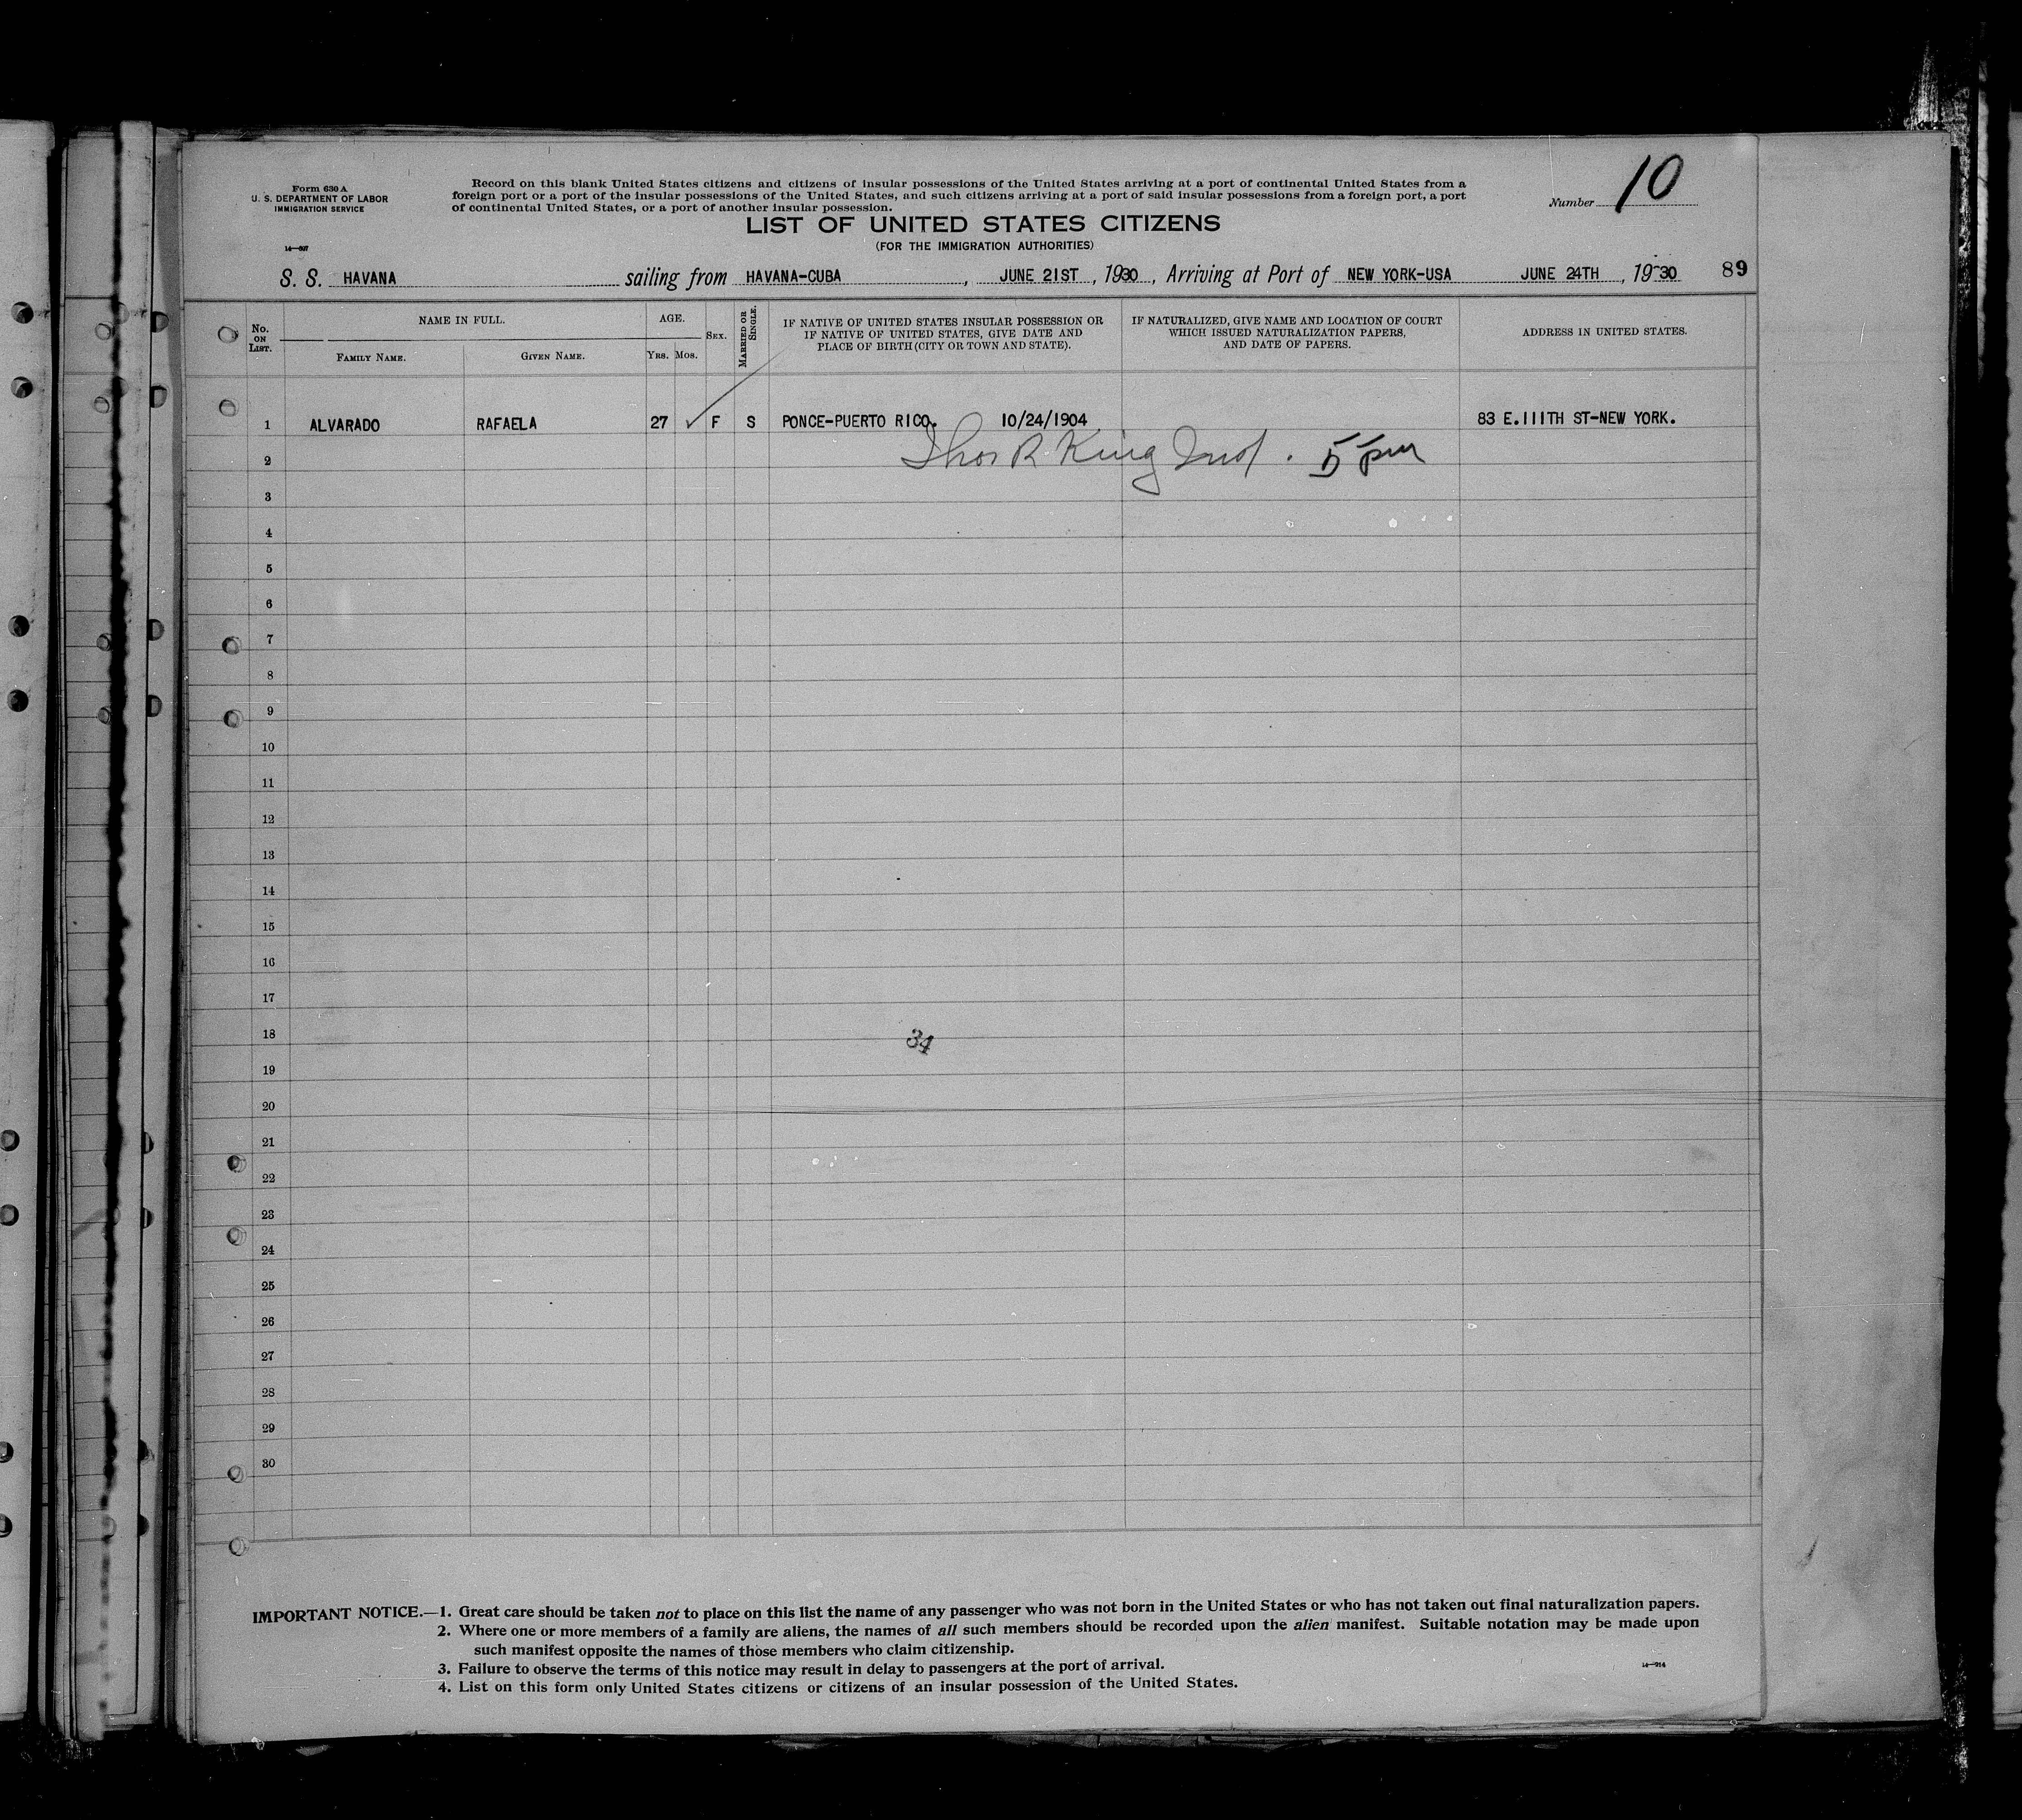 Form 630 A
U. S. DEPARTMENT OF LABOR
IMMIGRATION SERVICE
14—507
Record on this blank United States citizens and citizens of insular possessions of the United States arriving at a port of continental United States from a
foreign port or a port of the insular possessions of the United States, and such citizens arriving at a port of said insular possessions from a foreign port, a port
of continental United States, or a port of another insular possession.
Number 10
LIST OF UNITED STATES CITIZENS
(FOR THE IMMIGRATION AUTHORITIES)
S. S. HAVANA sailing from HAVANA-CUBA, JUNE 21ST, 1930, Arriving at Port of NEW YORK-USA JUNE 24TH, 1930 89
No. ON LIST.
NAME IN FULL.
FAMILY NAME. GIVEN NAME.
AGE.
YRS. MOS.
SEX.
MARRIED OR SINGLE.
IF NATIVE OF UNITED STATES INSULAR POSSESSION OR
IF NATIVE OF UNITED STATES, GIVE DATE AND
PLACE OF BIRTH (CITY OR TOWN AND STATE).
IF NATURALIZED, GIVE NAME AND LOCATION OF COURT
WHICH ISSUED NATURALIZATION PAPERS,
AND DATE OF PAPERS.
ADDRESS IN UNITED STATES.
1 ALVARADO RAFAELA 27 ✓ F S PONCE-PUERTO RICO. 10/24/1904 83 E.111TH ST-NEW YORK.
2 Thos R King 5 pm
3
4
5
6
7
8
9
10
11
12
13
14
15
16
17
18
34
19
20
21
22
23
24
25
26
27
28
29
30
IMPORTANT NOTICE.—1. Great care should be taken not to place on this list the name of any passenger who was not born in the United States or who has not taken out final naturalization papers.
2. Where one or more members of a family are aliens, the names of all such members should be recorded upon the alien manifest. Suitable notation may be made upon
such manifest opposite the names of those members who claim citizenship.
3. Failure to observe the terms of this notice may result in delay to passengers at the port of arrival.
4. List on this form only United States citizens or citizens of an insular possession of the United States.